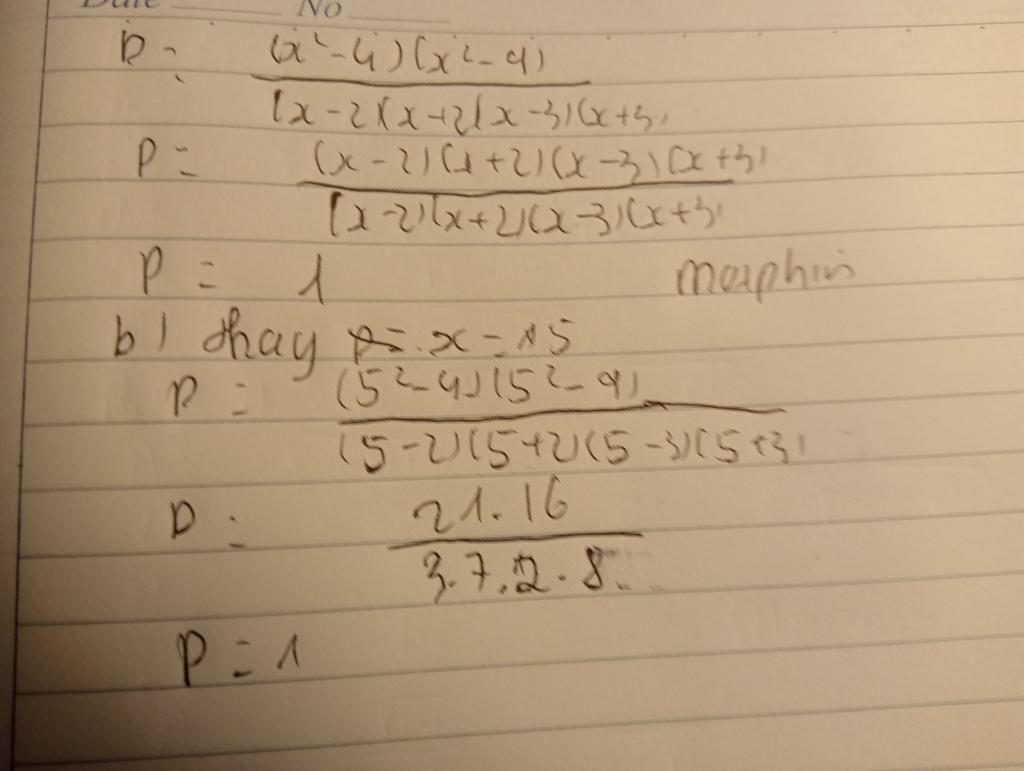 Date No
P = (x²-4)(x²-9)
(x-2)(x+2)(x-3)(x+3)
P = (x-2)(x+2)(x-3)(x+3)
(x-2)(x+2)(x-3)(x+3)
P = 1
b) thay x = 5
P = (5²-4)(5²-9)
(5-2)(5+2)(5-3)(5+3)
P = 21.16
3.7.2.8
P = 1